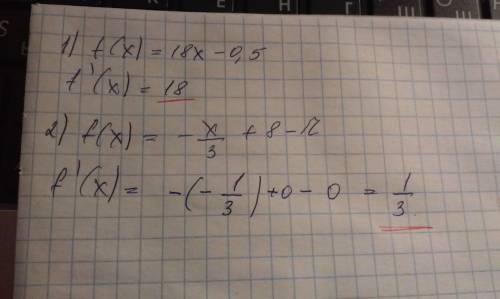 1) f(x) = 18x - 0,5
f'(x) = 18
2) f(x) = - x/3 + 8 - π
f'(x) = -(-1/3) + 0 - 0 = 1/3